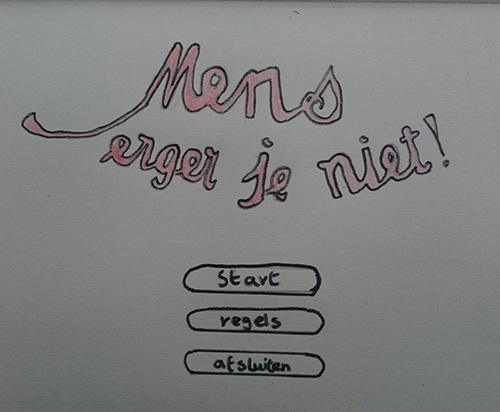 Mens
erger je niet!
Start
regels
afsluiten